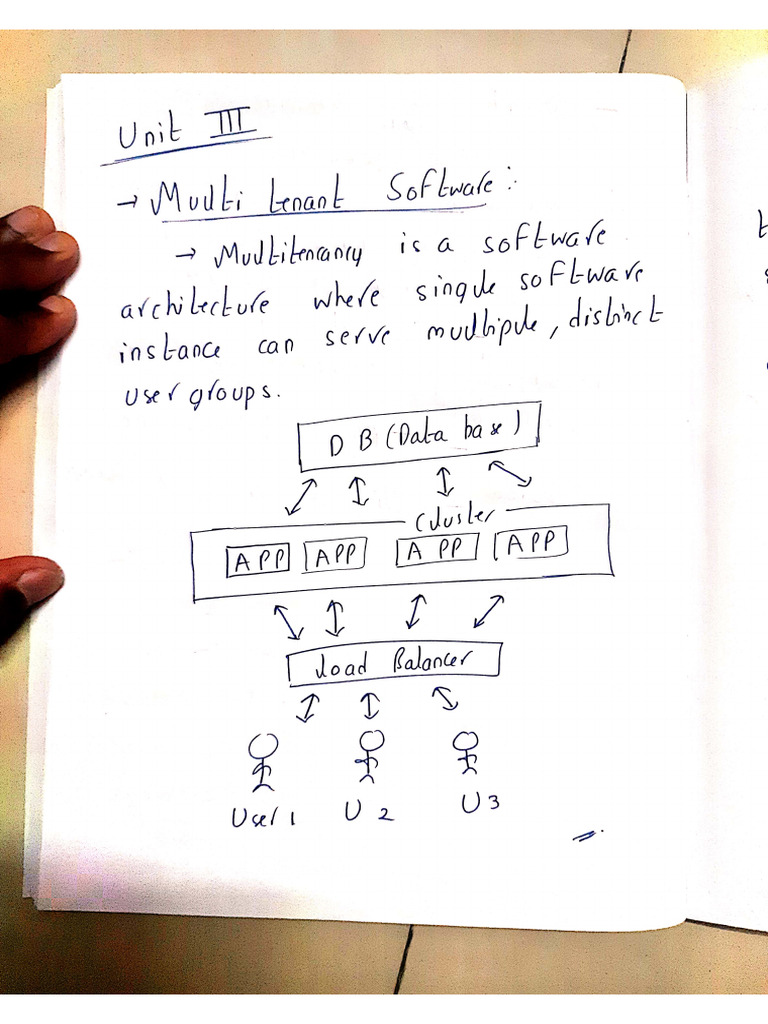 Unit III
→ Multi tenant Software:
→ Multitenancy is a software
architecture where single software
instance can serve multiple, distinct
user groups.
DB (Data base)
Cluster
APP APP APP APP
Load Balancer
User 1 U 2 U3